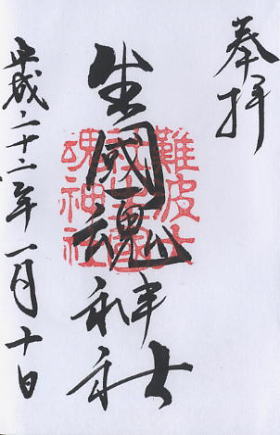 奉拝
生國魂神社
難波大
社生國
魂神社
平成二十二年一月十日